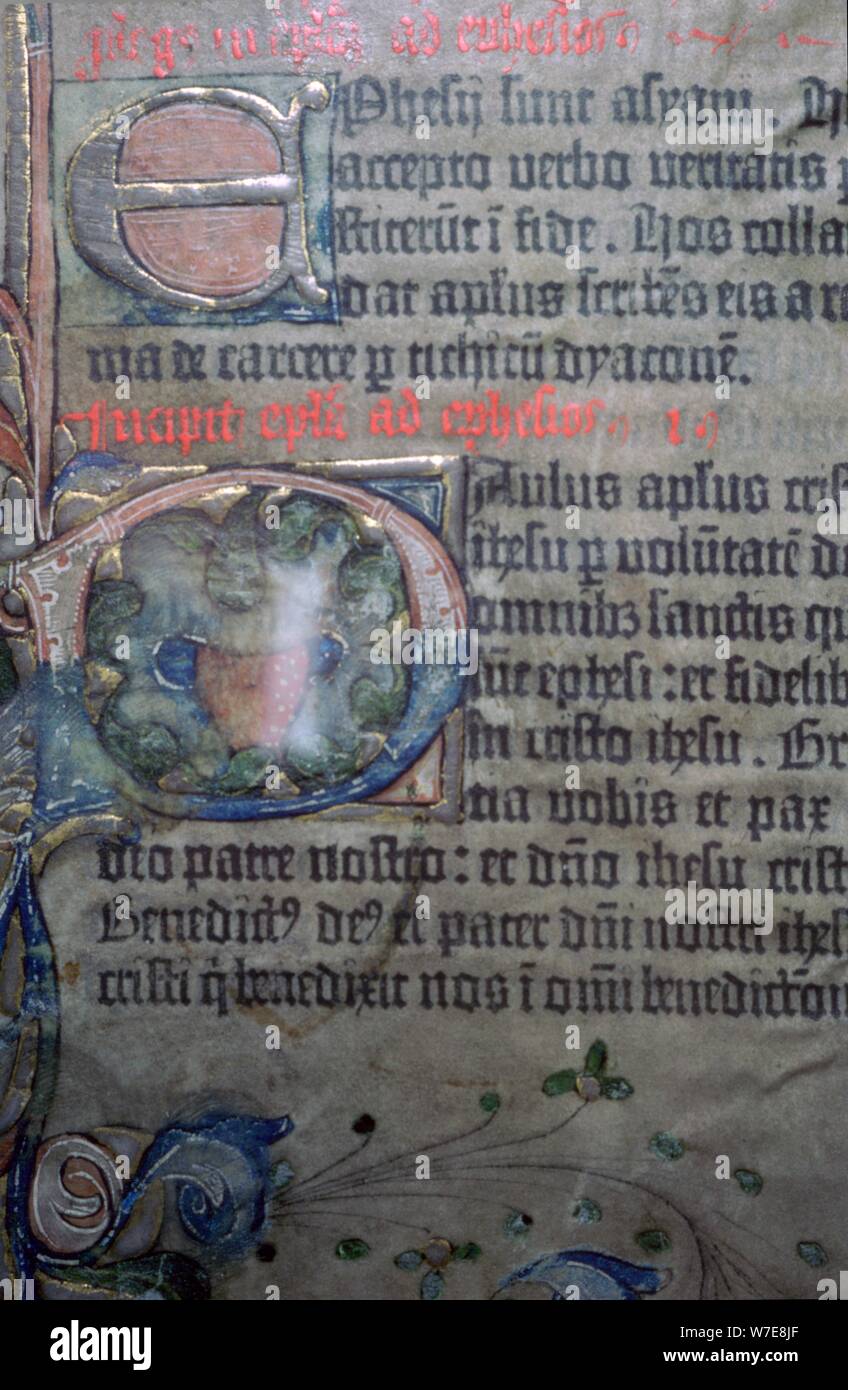 ad ephesios
EPhesij sunt asyani. H
accepto verbo veritatis p
stiterūt ī fide. Hos colla
dat aplus scribēs eis a ro
ma de carcere p tichicū dyaconē.
Incipit epla ad ephesios
PAulus aplus crist
ihesu p volūtatē d
omnibꝫ sanctis qu
sūt ephesi: et fidelib
in cristo ihesu. Gr
tia vobis et pax
deo patre nostro: et dño ihesu crist
Benedictꝰ deꝰ et pater dñi nostri ihes
cristi q̄ benedixit nos ī omī benedictōn
alamy
alamy
W7E8JF
www.alamy.com